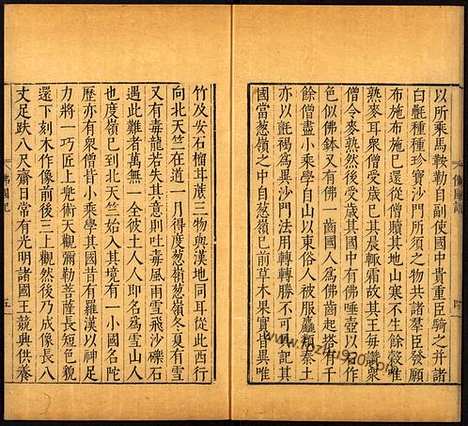 以所乘馬鞍勒自副使國中貴重臣騎之并諸
白㲲種種珍寶沙門所須之物共諸羣臣發願
布施布施已還從僧贖其地山寒不生餘穀唯
熟麥耳衆僧受歲已其晨輒霜故其王每讚衆
僧令麥熟然後受歲其國中有佛唾壺以石作
色似佛鉢又有佛一齒國人爲佛齒起塔有千
餘僧盡小乘學自山以東俗人被服麤類秦土
亦以氈褐爲異沙門法用轉轉勝不可具記其
國當葱嶺之中自葱嶺已前草木果實皆異唯
竹及安石榴甘蔗三物與漢地同耳從此西行
向北天竺在道一月得度葱嶺葱嶺冬夏有雪
又有毒龍若失其意則吐毒風雨雪飛沙礫石
遇此難者萬無一全彼土人人卽名爲雪山人
也度嶺已到北天竺始入其境有一小國名陀
歷亦有衆僧皆小乘學其國昔有羅漢以神足
力將一巧匠上兜術天觀彌勒菩薩長短色貌
還下刻木作像前後三上觀然後乃成像長八
丈足趺八尺齋日常有光明諸國王競興供養
佛國記
五